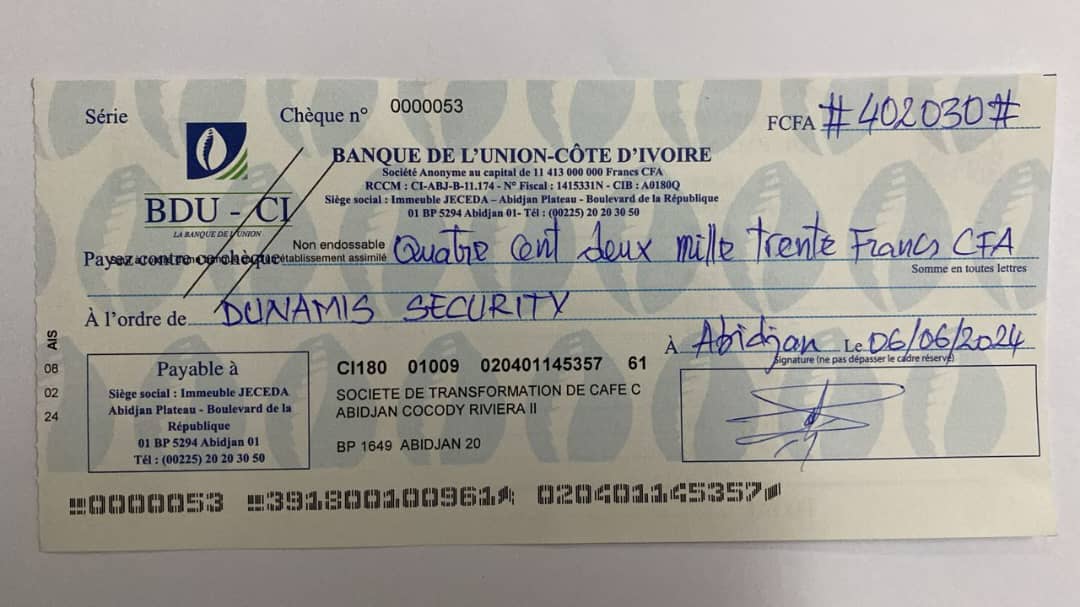 Série
Chèque n° 0000053
FCFA #402030#
BANQUE DE L'UNION-CÔTE D'IVOIRE
Société Anonyme au capital de 11 413 000 000 Francs CFA
RCCM : CI-ABJ-B-11.174 - N° Fiscal : 1415331N - CIB : A0180Q
Siège social : Immeuble JECEDA – Abidjan Plateau - Boulevard de la République
01 BP 5294 Abidjan 01- Tél : (00225) 20 20 30 50
BDU - CI
LA BANQUE DE L'UNION
Non endossable
établissement assimilé
Payez contre ce chèque Quatre cent deux mille trente Francs CFA
Somme en toutes lettres
À l'ordre de DUNAMIS SECURITY
À Abidjan Le 06/06/2024
Signature (ne pas dépasser le cadre réservé)
AIS
08
02
24
Payable à
Siège social : Immeuble JECEDA
Abidjan Plateau - Boulevard de la
République
01 BP 5294 Abidjan 01
Tél : (00225) 20 20 30 50
CI180 01009 020401145357 61
SOCIETE DE TRANSFORMATION DE CAFE C
ABIDJAN COCODY RIVIERA II
BP 1649 ABIDJAN 20
0000053 391800100961 020401145357